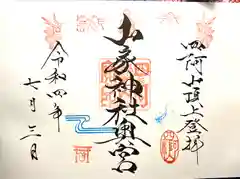 四阿山頂上登拝
山家神社奥宮
令和四年
七月三日